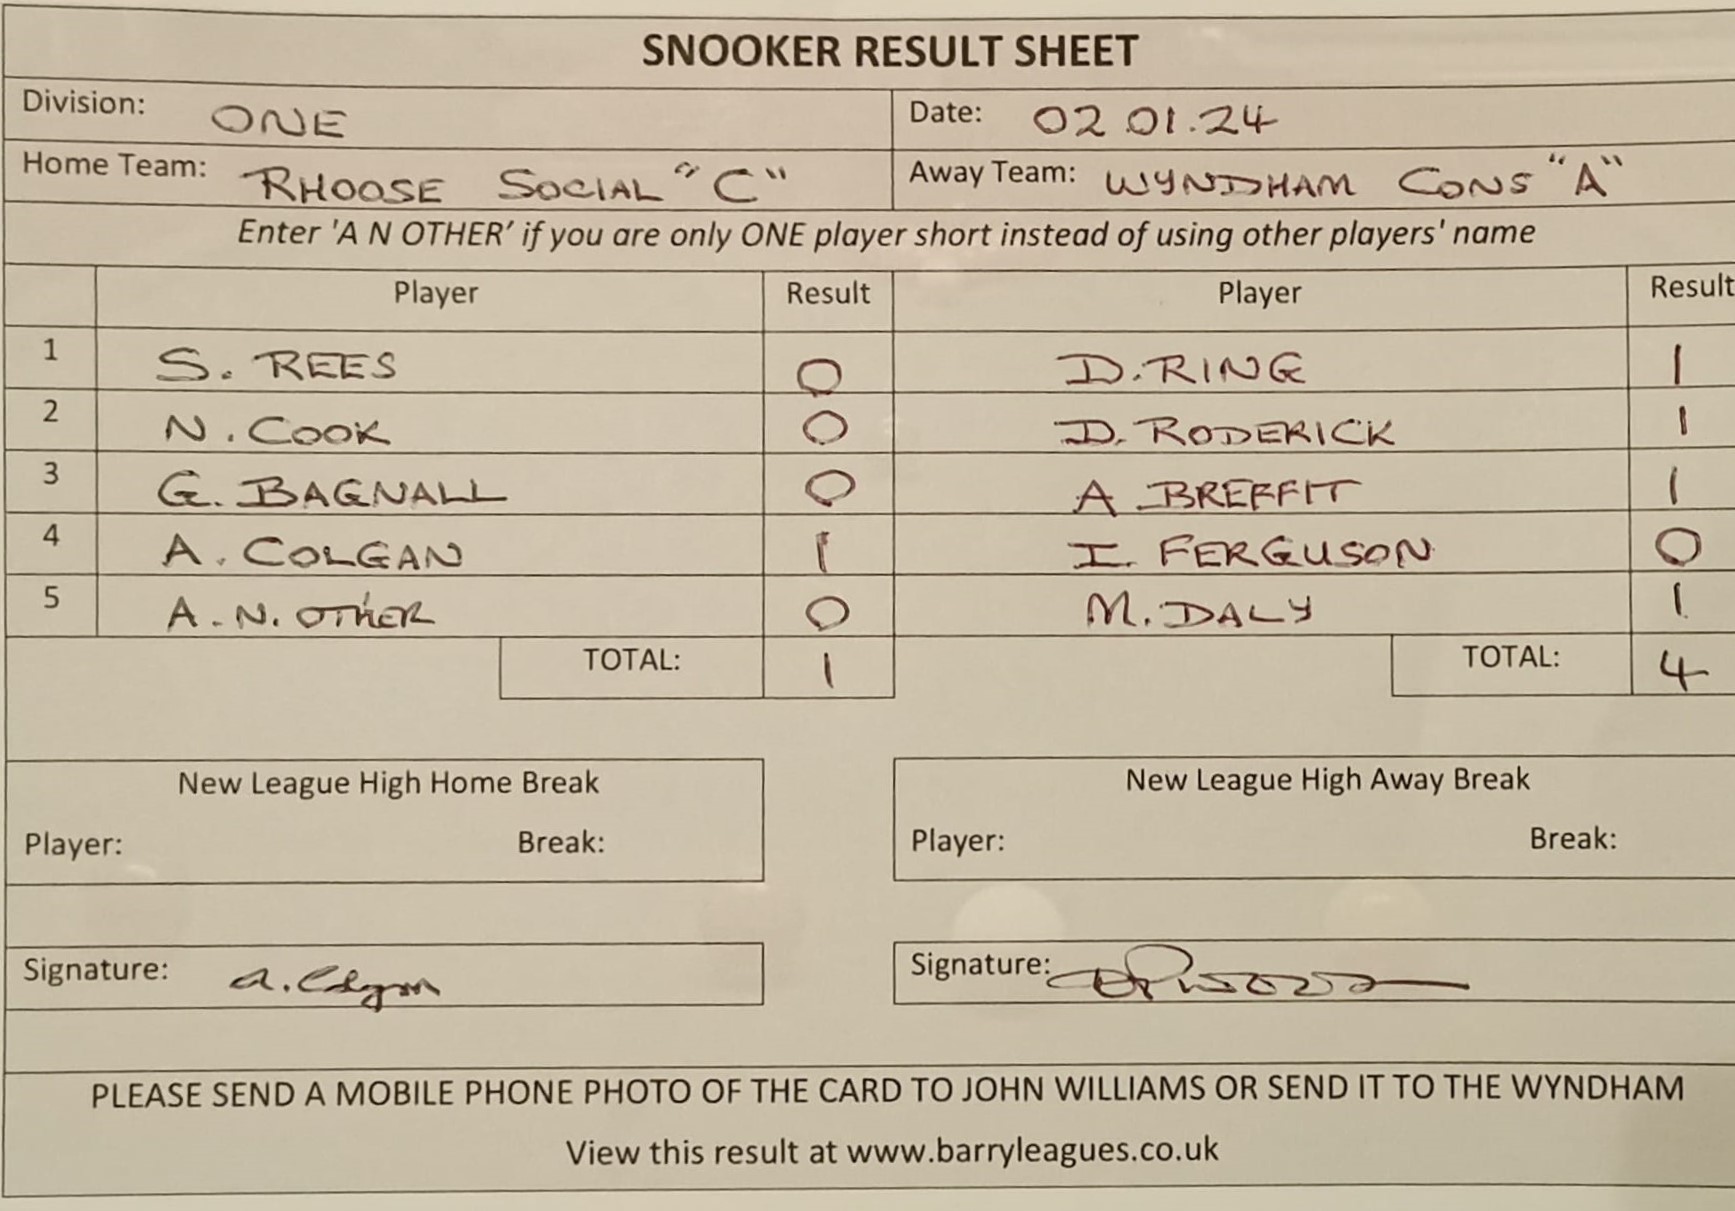 SNOOKER RESULT SHEET
Division: ONE Date: 02 01.24
Home Team: RHOOSE SOCIAL "C" Away Team: WYNDHAM CONS "A"
Enter 'A N OTHER' if you are only ONE player short instead of using other players' name
Player Result Player Result
1 S. REES 0 D. RING 1
2 N. COOK 0 D. RODERICK 1
3 G. BAGNALL 0 A BREFFIT 1
4 A. COLGAN 1 I. FERGUSON 0
5 A. N. OTHER 0 M. DALY 1
TOTAL: 1 TOTAL: 4
New League High Home Break New League High Away Break
Player: Break: Player: Break:
Signature: A. Colgan Signature:
PLEASE SEND A MOBILE PHONE PHOTO OF THE CARD TO JOHN WILLIAMS OR SEND IT TO THE WYNDHAM
View this result at www.barryleagues.co.uk